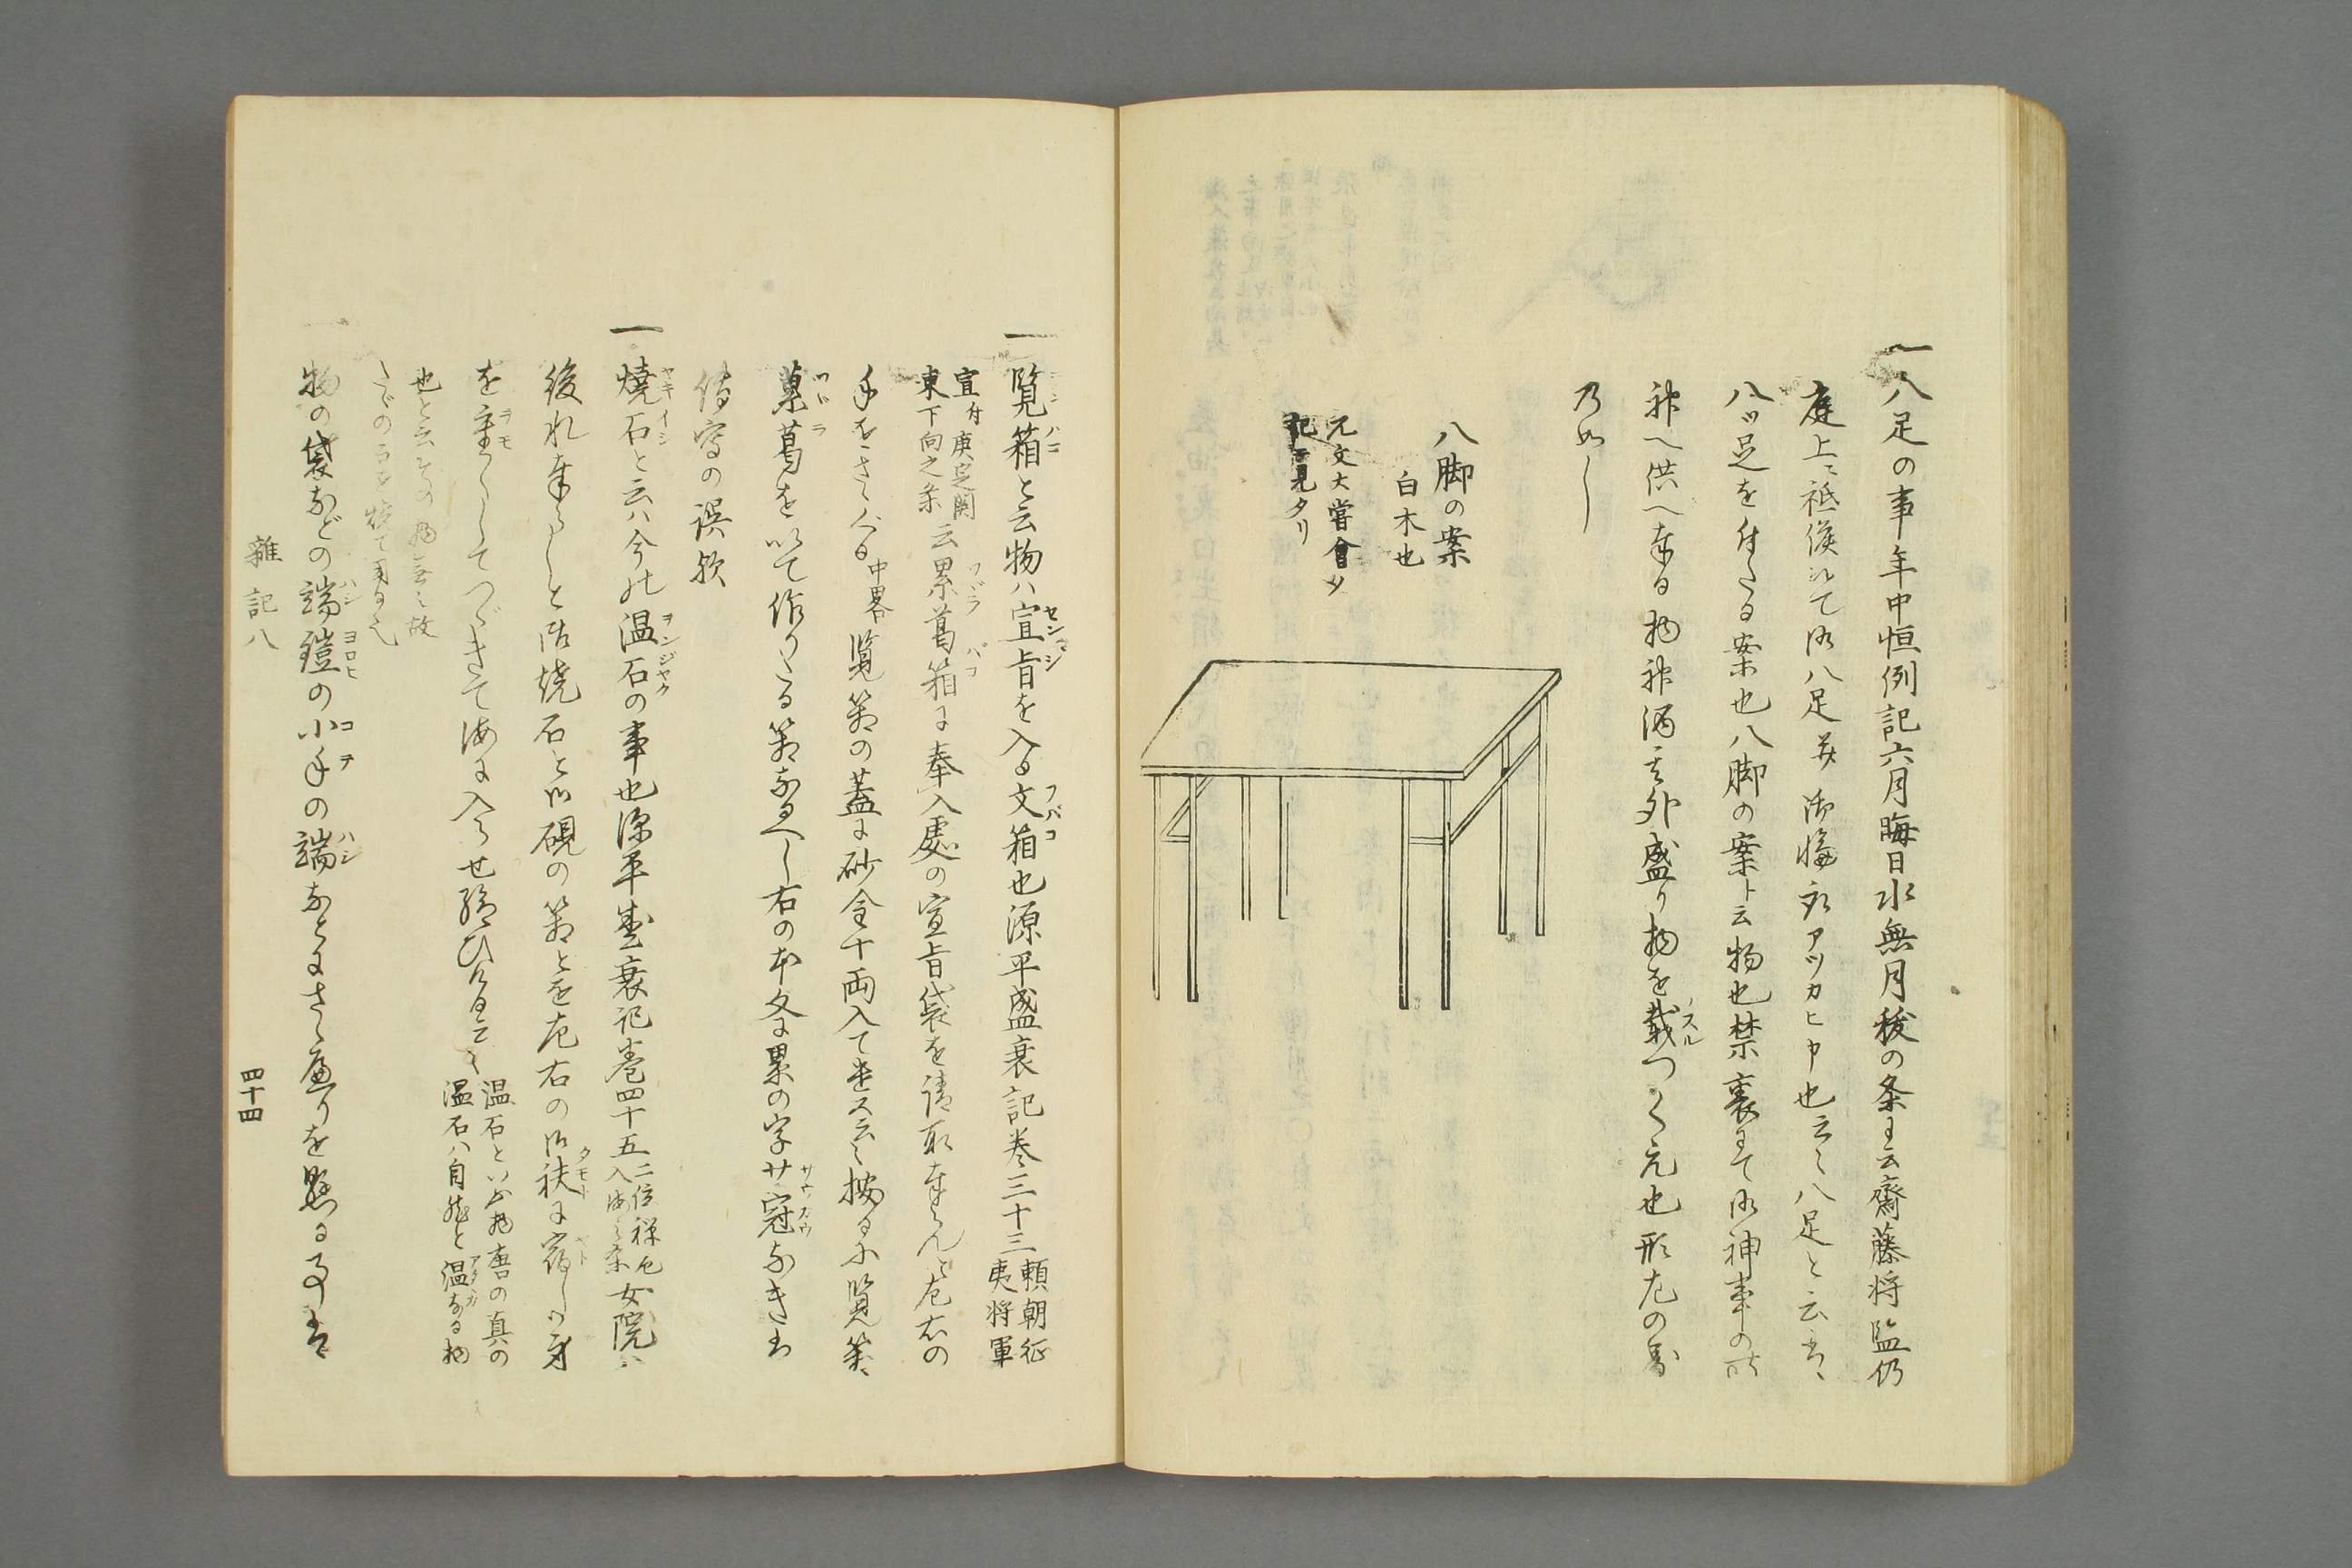 一八足の事年中恒例記六月晦日水無月秡の条ニ云齋藤将監仍
庭上ニ祗候いて御八足并御膳取アツカヒ申也云々八足と云は
八ツ足を付たる案也八脚の案ト云物也禁裏にて御神事の時
神へ供へ奉る物神酒其外盛り物を載つくえ也形左の圖
乃如し
八脚の案
白木也
元文大嘗會ノ
記ニ見タリ
一覧箱と云物ハ宣旨を入る文箱也源平盛衰記巻三十三頼朝征
夷将軍
宣付庚定関
東下向之条云累葛箱に奉入處の宣旨袋を請取奉らんと左右の
手をさゝぐる中畧覧箱の蓋に砂金十両入て出ス云々按るに覧箱ハ
菓葛を以て作りたる箱なるへし右の本文に累の字サ冠なきは
傳寫の誤欤
一焼石と云ハ今の温石の事也源平盛衰記巻四十五二位禅尼
入海之条女院ハ
後れ奉らしと御焼石と御硯の箱とを左右の御袂に宿し御身
を重くしてつゞきて海に入らせ給ひける云々温石といふ物唐の真の
温石ハ自然と温なる物
也と云その物無之故
物の袋などの端鎧の小手の端などにさゝ縁りを懸る事は
雜記八
四十四